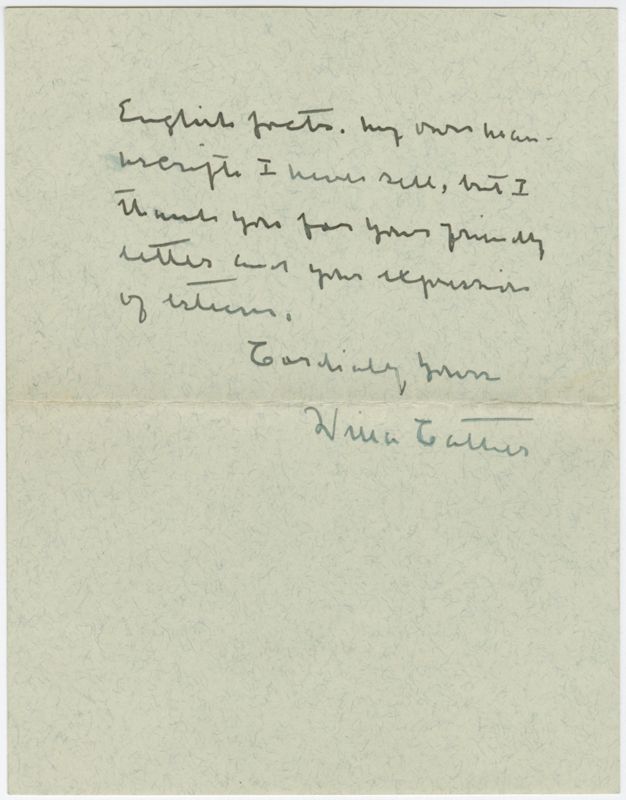 English poets. My own man-
uscripts I never sell, but I
thank you for your friendly
letter and your expression
of esteem.
Cordially yours
Willa Cather